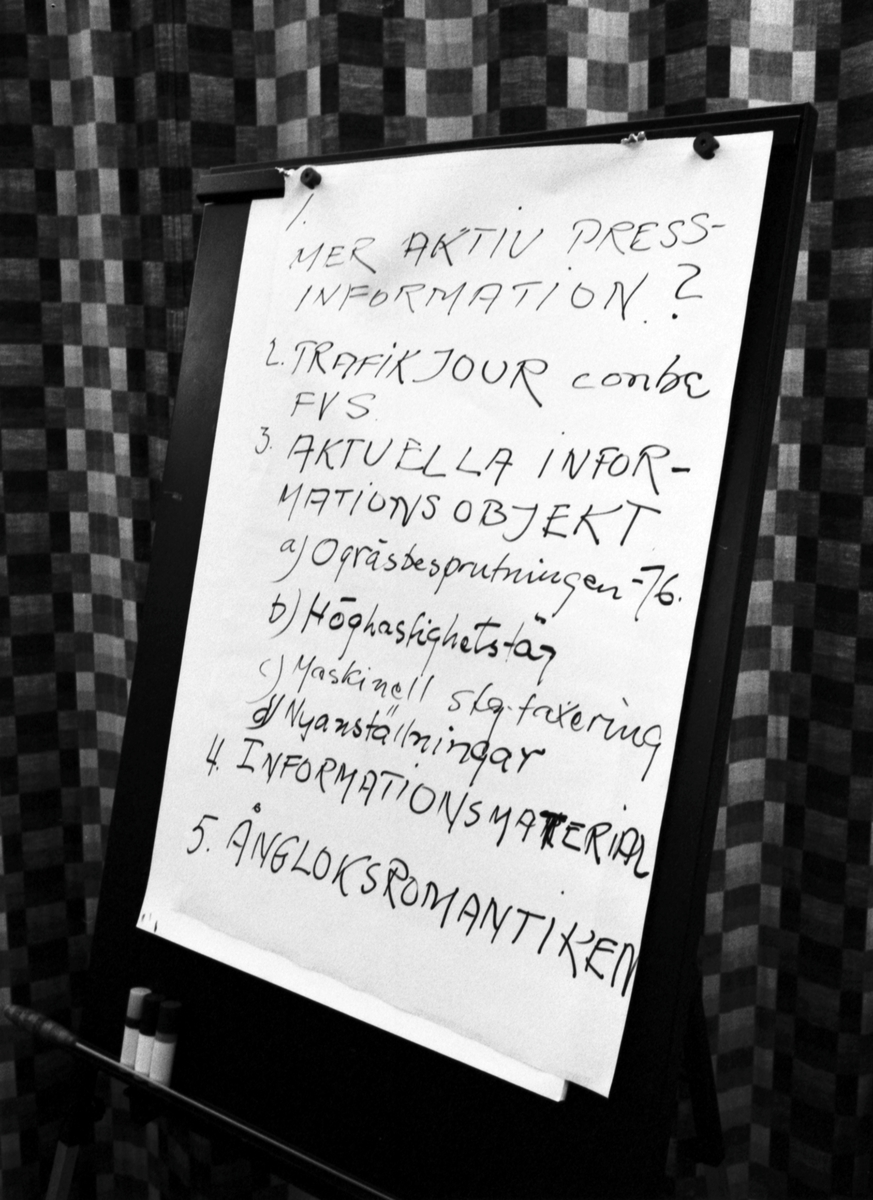 1.
MER AKTIV PRESS-
INFORMATION ?
2. TRAFIKJOUR contra
FVS
3. AKTUELLA INFOR-
MATIONSOBJEKT
a) Ogräsbesprutningen -76.
b) Höghastighetståg
c) Maskinell stg-taxering
d) Nyanställningar
4. INFORMATIONSMATERIAL
5. ÅNGLOKSROMANTIKEN